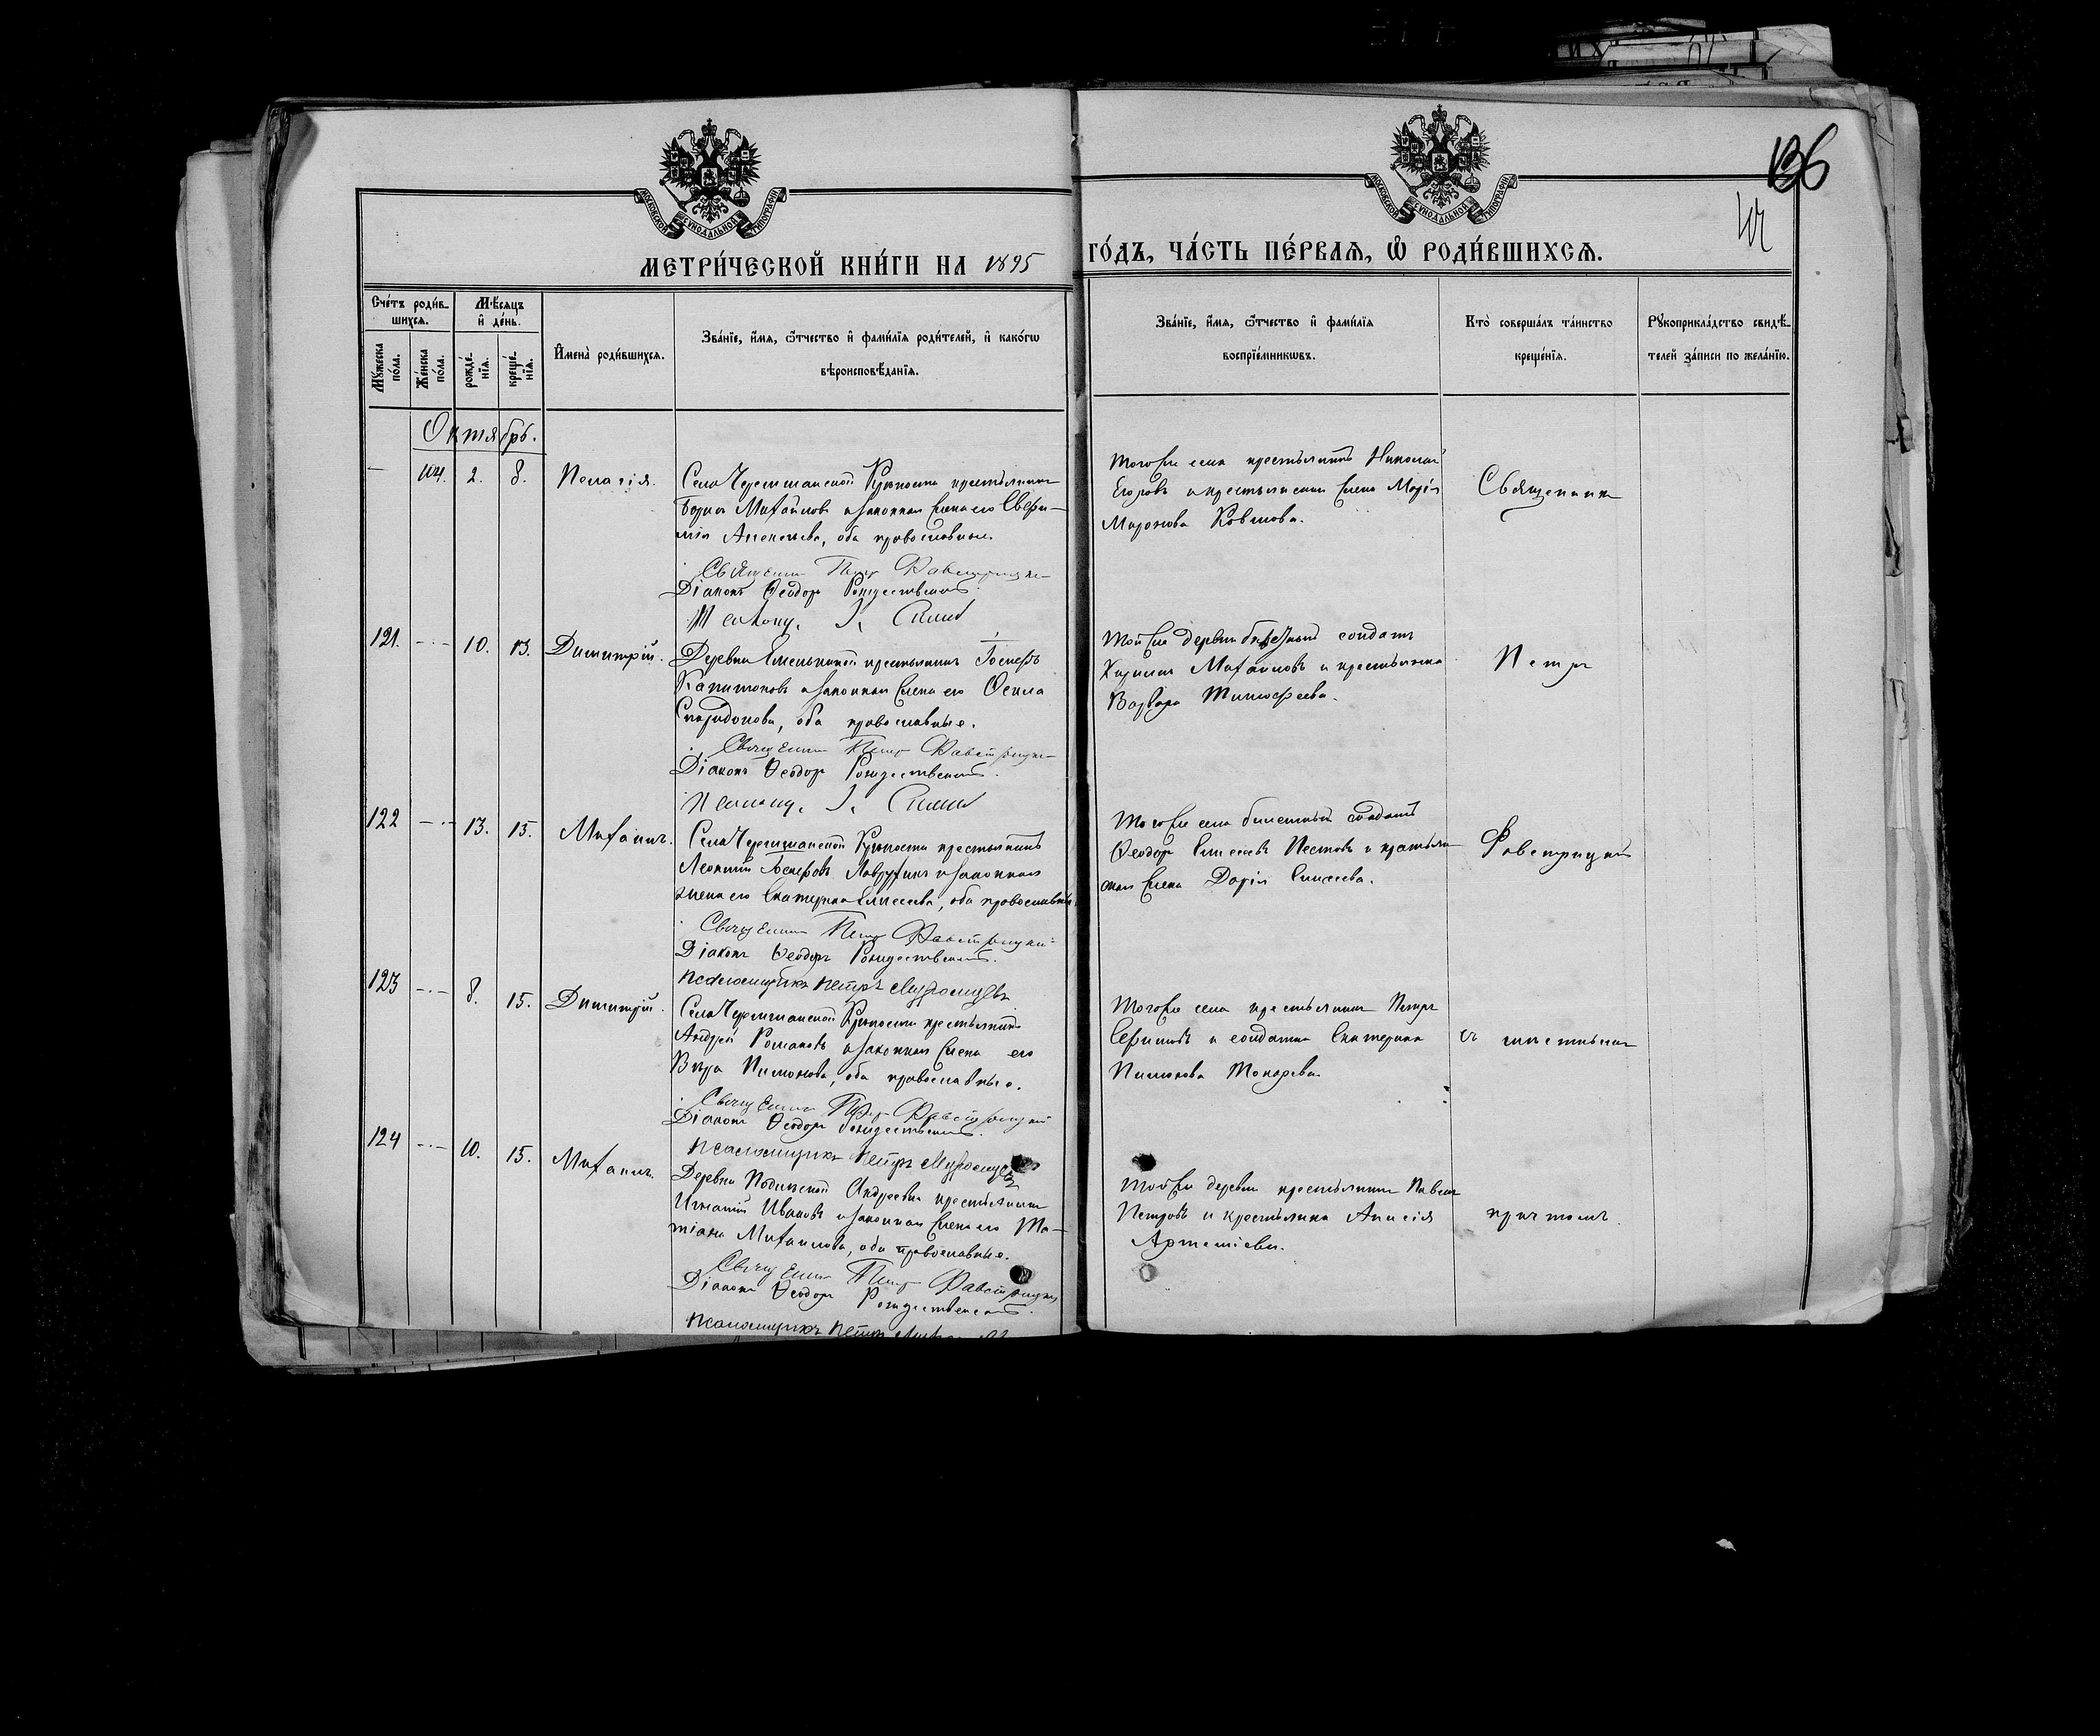 136
МОСКОВСКОЙ СѴНОДАЛЬНОЙ ТИПОГРАФІИ
МОСКОВСКОЙ СѴНОДАЛЬНОЙ ТИПОГРАФІИ
МЕТРИ́ЧЕСКОЙ КНИ́ГИ НА 1895 ГО́ДЪ, ЧА́СТЬ ПЕ́РВАЯ, Ѽ РОДИ́ВШИХСЯ.
Сче́тъ роди́в-
шихся.
Мꙋ́жеска по́ла.
Же́нска по́ла.
Мѣ́сяцъ
и҆ де́нь.
рожде́-
нїя.
креще́-
нїя.
И҆мена̀ роди́вшихся.
Зва́нїе, и҆́мя, ѻ҆́тчество и҆ фами́лїя роди́телей, и҆ како́гѡ
вѣроисповѣ́данїя.
Зва́нїе, и҆́мя, ѻ҆́тчество и҆ фами́лїя
воспрїе́мникѡвъ.
Кто̀ соверша́лъ та́инство
креще́нїя.
Рꙋкоприкла́дство свидѣ́-
телей за́писи по жела́нїю.
Октябрь.
— 114. 2. 8. Пелагія.
Села Черемшанской Крѣпости крестьянинъ
Михайловъ и законная жена его Евфи-
мія оба православные.
Священникъ Петръ Фавстрицкій
Діаконъ Ѳеодоръ Рождественскій.
Того же села крестьянинъ Николай
Егоровъ и крестьянская жена Марія
Миронова
Священникъ
121. — 10. 13. Димитрій.
Деревни крестьянинъ Іосифъ
Капитоновъ и законная жена его Ѳекла
Спиридонова, оба православные.
Священникъ Петръ Фавстрицкій
Діаконъ Ѳеодоръ Рождественскій.
Той же деревни солдатъ
Михайловъ и крестьянка
Варвара Тимофеева.
Петръ
122 — 13. 15. Михаилъ.
Села Черемшанской Крѣпости крестьянинъ
Леонтій Іосифовъ и законная
жена его Екатерина Елисеева, оба православные
Священникъ Петръ Фавстрицкій
Діаконъ Ѳеодоръ Рождественскій.
Псаломщикъ Петръ
Того же села билетный солдатъ
Ѳеодоръ Елисеевъ Пестовъ и крестьян-
ская жена Дарія Елисеева.
Фавстрицкій
123 — 8. 15. Димитрій.
Села Черемшанской Крѣпости крестьянинъ
Андрей Романовъ и законная жена его
Вѣра Пимонова, оба православные.
Священникъ Петръ Фавстрицкій
Діаконъ Ѳеодоръ Рождественскій.
Псаломщикъ Петръ
Того же села крестьянинъ Петръ
и солдатка Екатерина
Пимонова Токарева
съ мѣстнымъ
124 — 10. 15. Михаилъ.
Деревни Андреевки крестьянинъ
Игнатій Ивановъ и законная жена его Та-
тіана Михаилова, оба православные.
Священникъ Петръ Фавстрицкій
Діаконъ Ѳеодоръ Рождественскій.
Псаломщикъ Петръ
Той же деревни крестьянинъ Павелъ
Петровъ и крестьянка Анисія
Артеміева.
причтомъ.